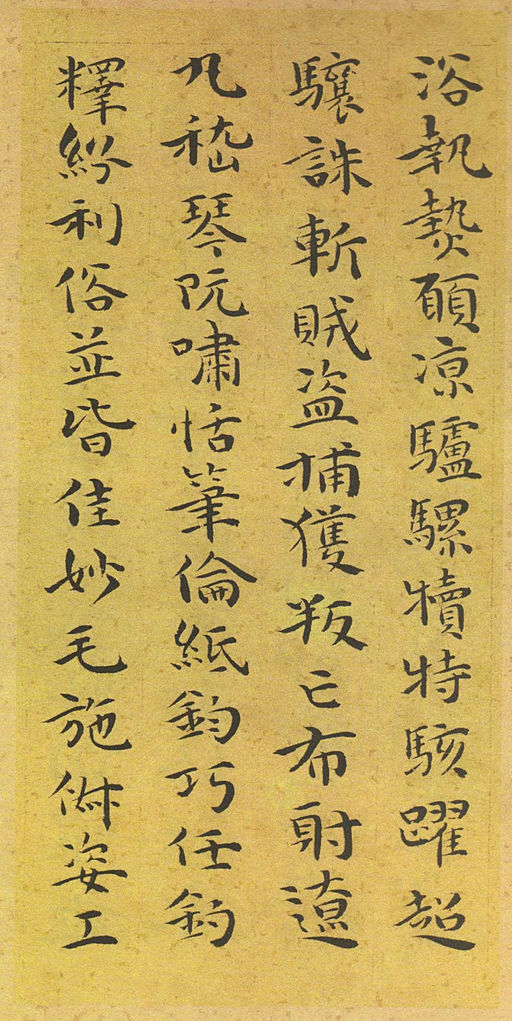 浴執熱願凉驢騾犢特駭躍超
驤誅斬賊盜捕獲叛亡布射遼
丸嵇琴阮嘯恬筆倫紙鈞巧任釣
釋紛利俗並皆佳妙毛施淑姿工